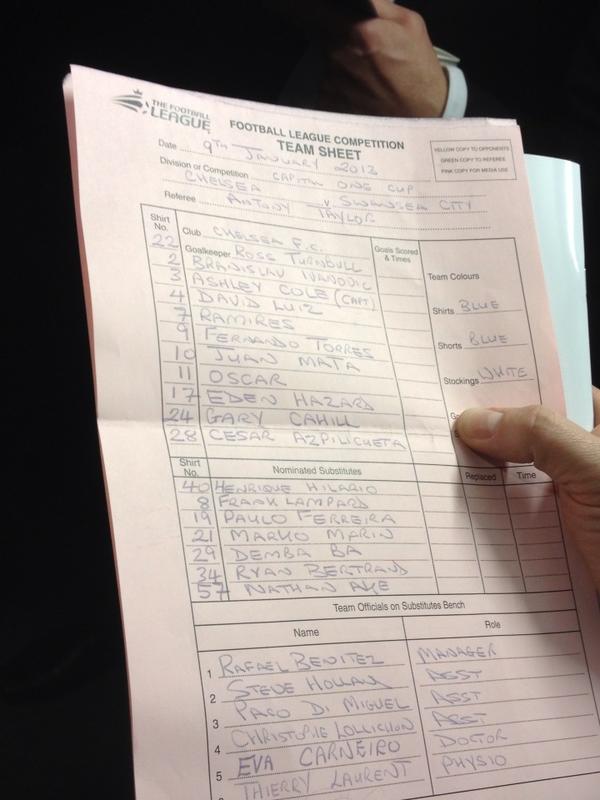 THE FOOTBALL
LEAGUE
FOOTBALL LEAGUE COMPETITION
TEAM SHEET
YELLOW COPY TO OPPONENTS
GREEN COPY TO REFEREE
PINK COPY FOR MEDIA USE
Date 9TH JANUARY 2013
Division or Competition CAPITAL ONE CUP
CHELSEA v SWANSEA CITY
Referee ANTONY TAYLOR
Shirt No. Club CHELSEA F.C. Goals Scored & Times
22 Goalkeeper ROSS TURNBULL
2 BRANISLAV IVANOVIC
3 ASHLEY COLE (CAPT)
4 DAVID LUIZ
7 RAMIRES
9 FERNANDO TORRES
10 JUAN MATA
11 OSCAR
17 EDEN HAZARD
24 GARY CAHILL
28 CESAR AZPILICUETA
Team Colours
Shirts BLUE
Shorts BLUE
Stockings WHITE
Shirt No. Nominated Substitutes Replaced Time
40 HENRIQUE HILARIO
8 FRANK LAMPARD
19 PAULO FERREIRA
21 MARKO MARIN
29 DEMBA BA
34 RYAN BERTRAND
57 NATHAN AKE
Team Officials on Substitutes Bench
Name Role
1 RAFAEL BENITEZ MANAGER
2 STEVE HOLLAND ASST
3 PACO DI MIGUEL ASST
4 CHRISTOPHE LOLLICHON ASST
5 EVA CARNEIRO DOCTOR
THIERRY LAURENT PHYSIO